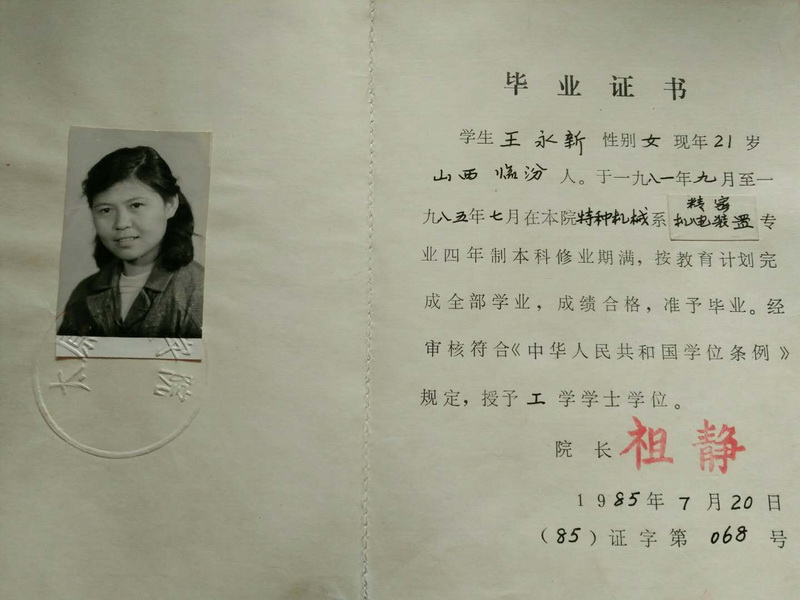 毕业证书
学生王永新 性别女 现年21岁
山西临汾人。于一九八一年九月至一
九八五年七月在本院特种机械系精密机电装置专
业四年制本科修业期满，按教育计划完
成全部学业，成绩合格，准予毕业。经
审核符合《中华人民共和国学位条例》
规定，授予工学学士学位。
院长 祖静
1985年7月20日
（85）证字第068号
太
院